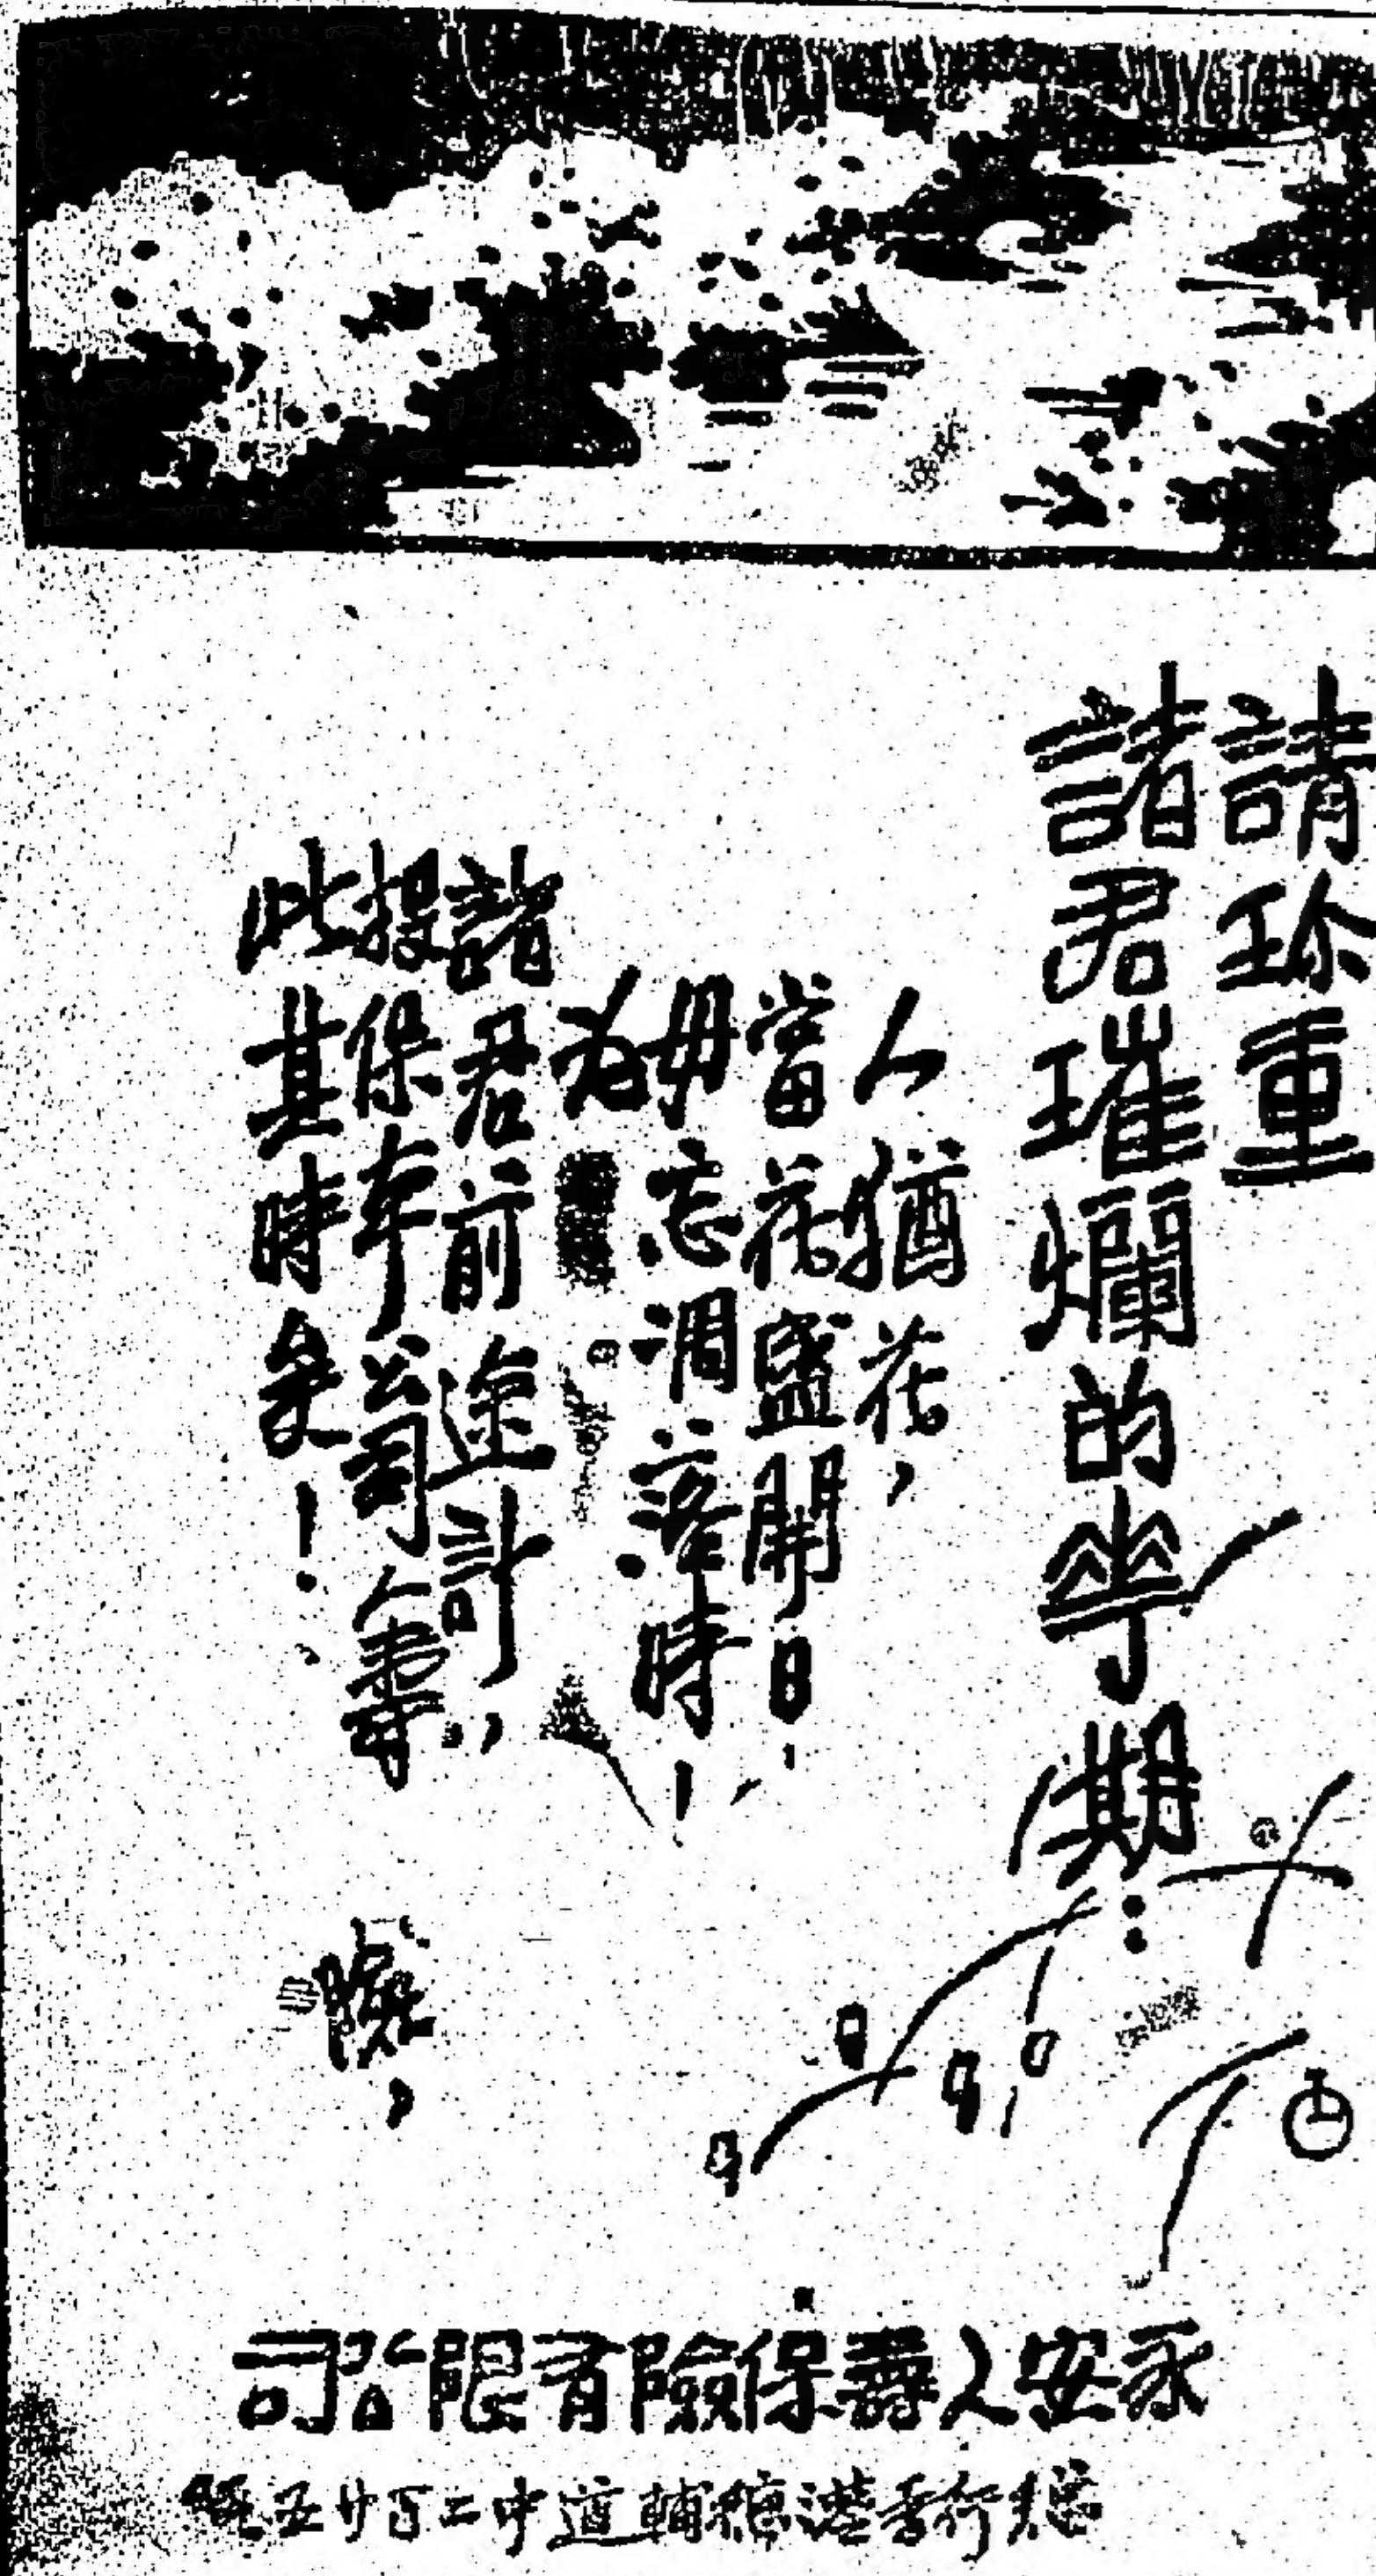 請珍重
諸君璀爛的華期：
人猶花，
當花盛開日，
毋忘凋落時！
為
諸君前途計，
投保本公司人壽
險，
此其時矣！
永安人壽保險有限公司
總行香港德輔道中二百廿五號